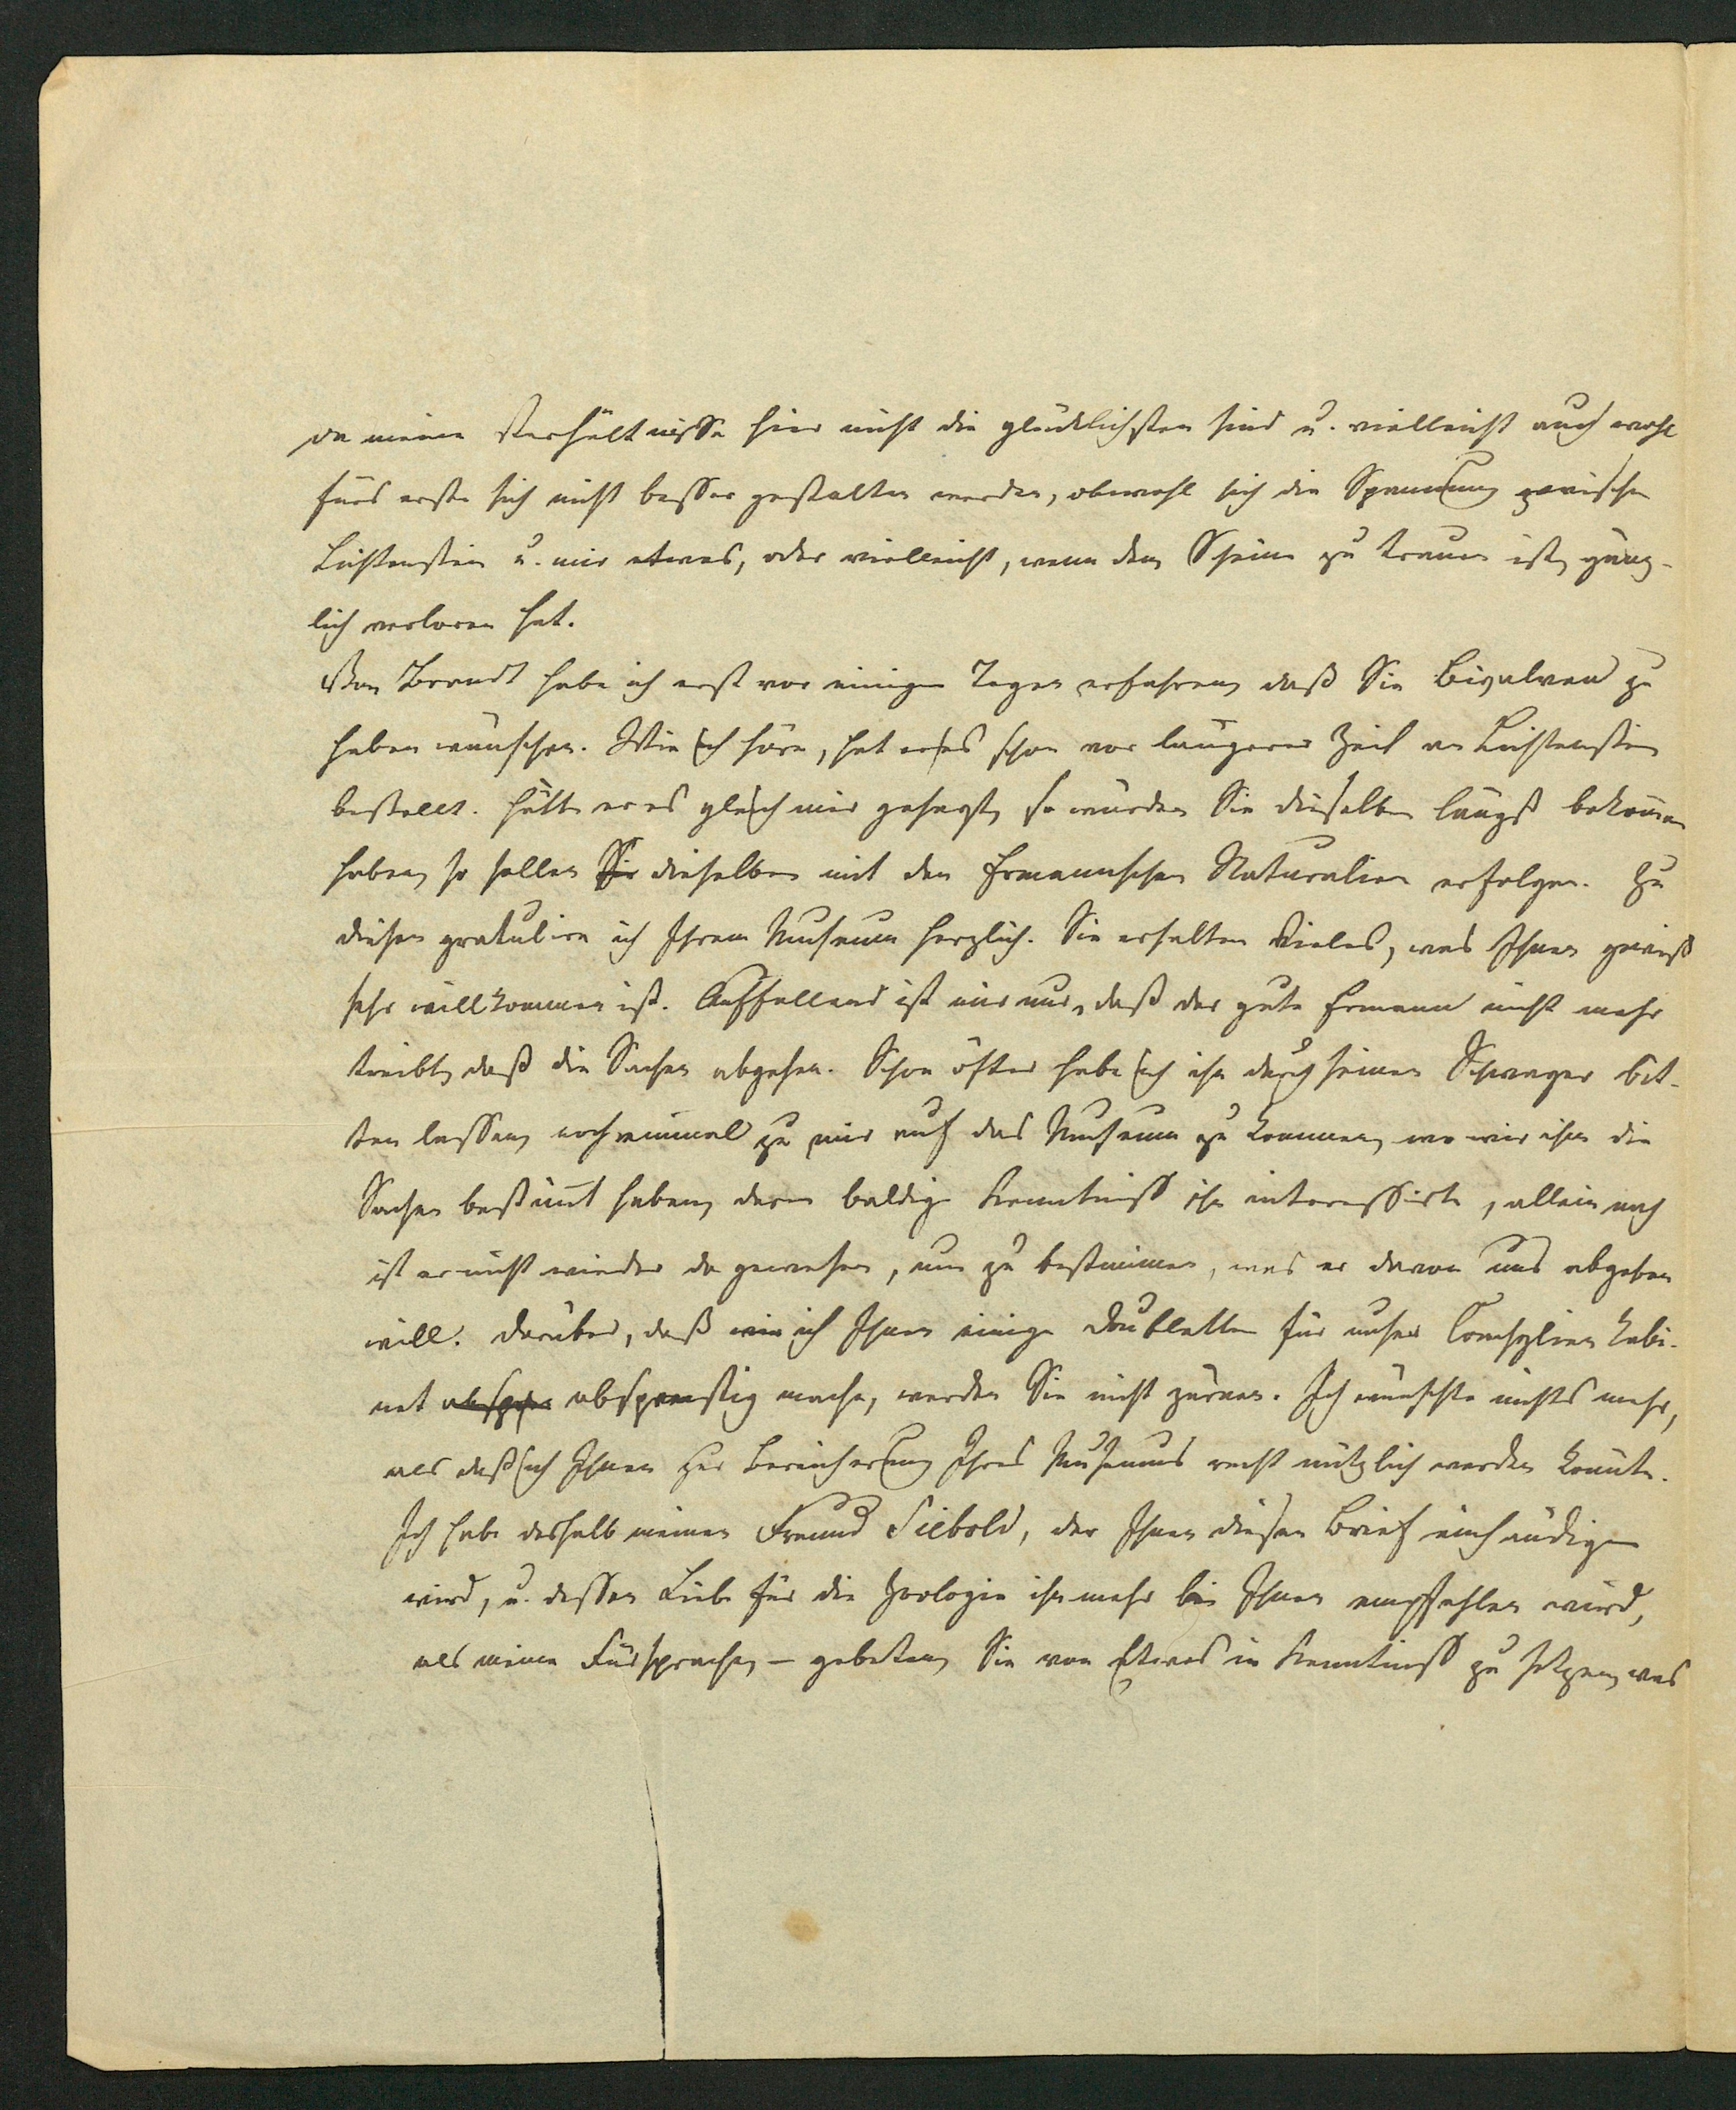 da meine Verhältnisse hier nicht die glücklichsten sind u. vielleicht auch wohl
fürs erste sich nicht besser gestalten werden, obwohl sich die Spannung zwischen
Lichtenstein u. mir etwas, oder vielleicht, wenn dem Schein zu trauen ist, gänz-
lich verloren hat.
Von Brandt habe ich erst vor einigen Tagen erfahren, daß Sie Bivalven zu
haben wünschen. Wie ich höre, hat er es schon vor längerer Zeit an Lichtenstein
bestellt. Hätte er es gleich mir gesagt, so würden Sie dieselben längst bekommen
haben, so sollen Sie dieselben mit den Ermannschen Naturalien erfolgen. Zu
diesen gratulire ich Ihrem Museum herzlich. Sie erhalten Vieles, was Ihnen gewiß
sehr willkommen ist. Auffallend ist mir nur, daß der gute Ermann nicht mehr
treibt, daß die Sachen abgehen. Schon öfter habe ich ihn durch seinen Schwager bit-
ten lassen, noch einmal zu mir auf das Museum zu kommen, wo wir ihm die
Sachen bestimt haben, deren baldige Kenntniß ihn interessirte, allein noch
ist er nicht wieder da gewesen, um zu bestimmen, was er davon uns abgeben
will. Darüber, daß wie ich Ihnen einige Doubletten für unser Conchylien Kabi-
net abspenstig mache, werden Sie nicht zürnen. Ich wünschte nichts mehr,
als daß ich Ihnen zur Bereicherung Ihres Museums recht nützlich werden könnte.
Ich habe deshalb meinen Freund Siebold, der Ihnen diesen Brief einhändigen
wird, u. dessen Liebe für die Zoologie ihn mehr bei Ihnen empfehlen wird,
als meine Fürsprache, – gebeten, Sie von Etwas in Kenntniß zu setzen, was